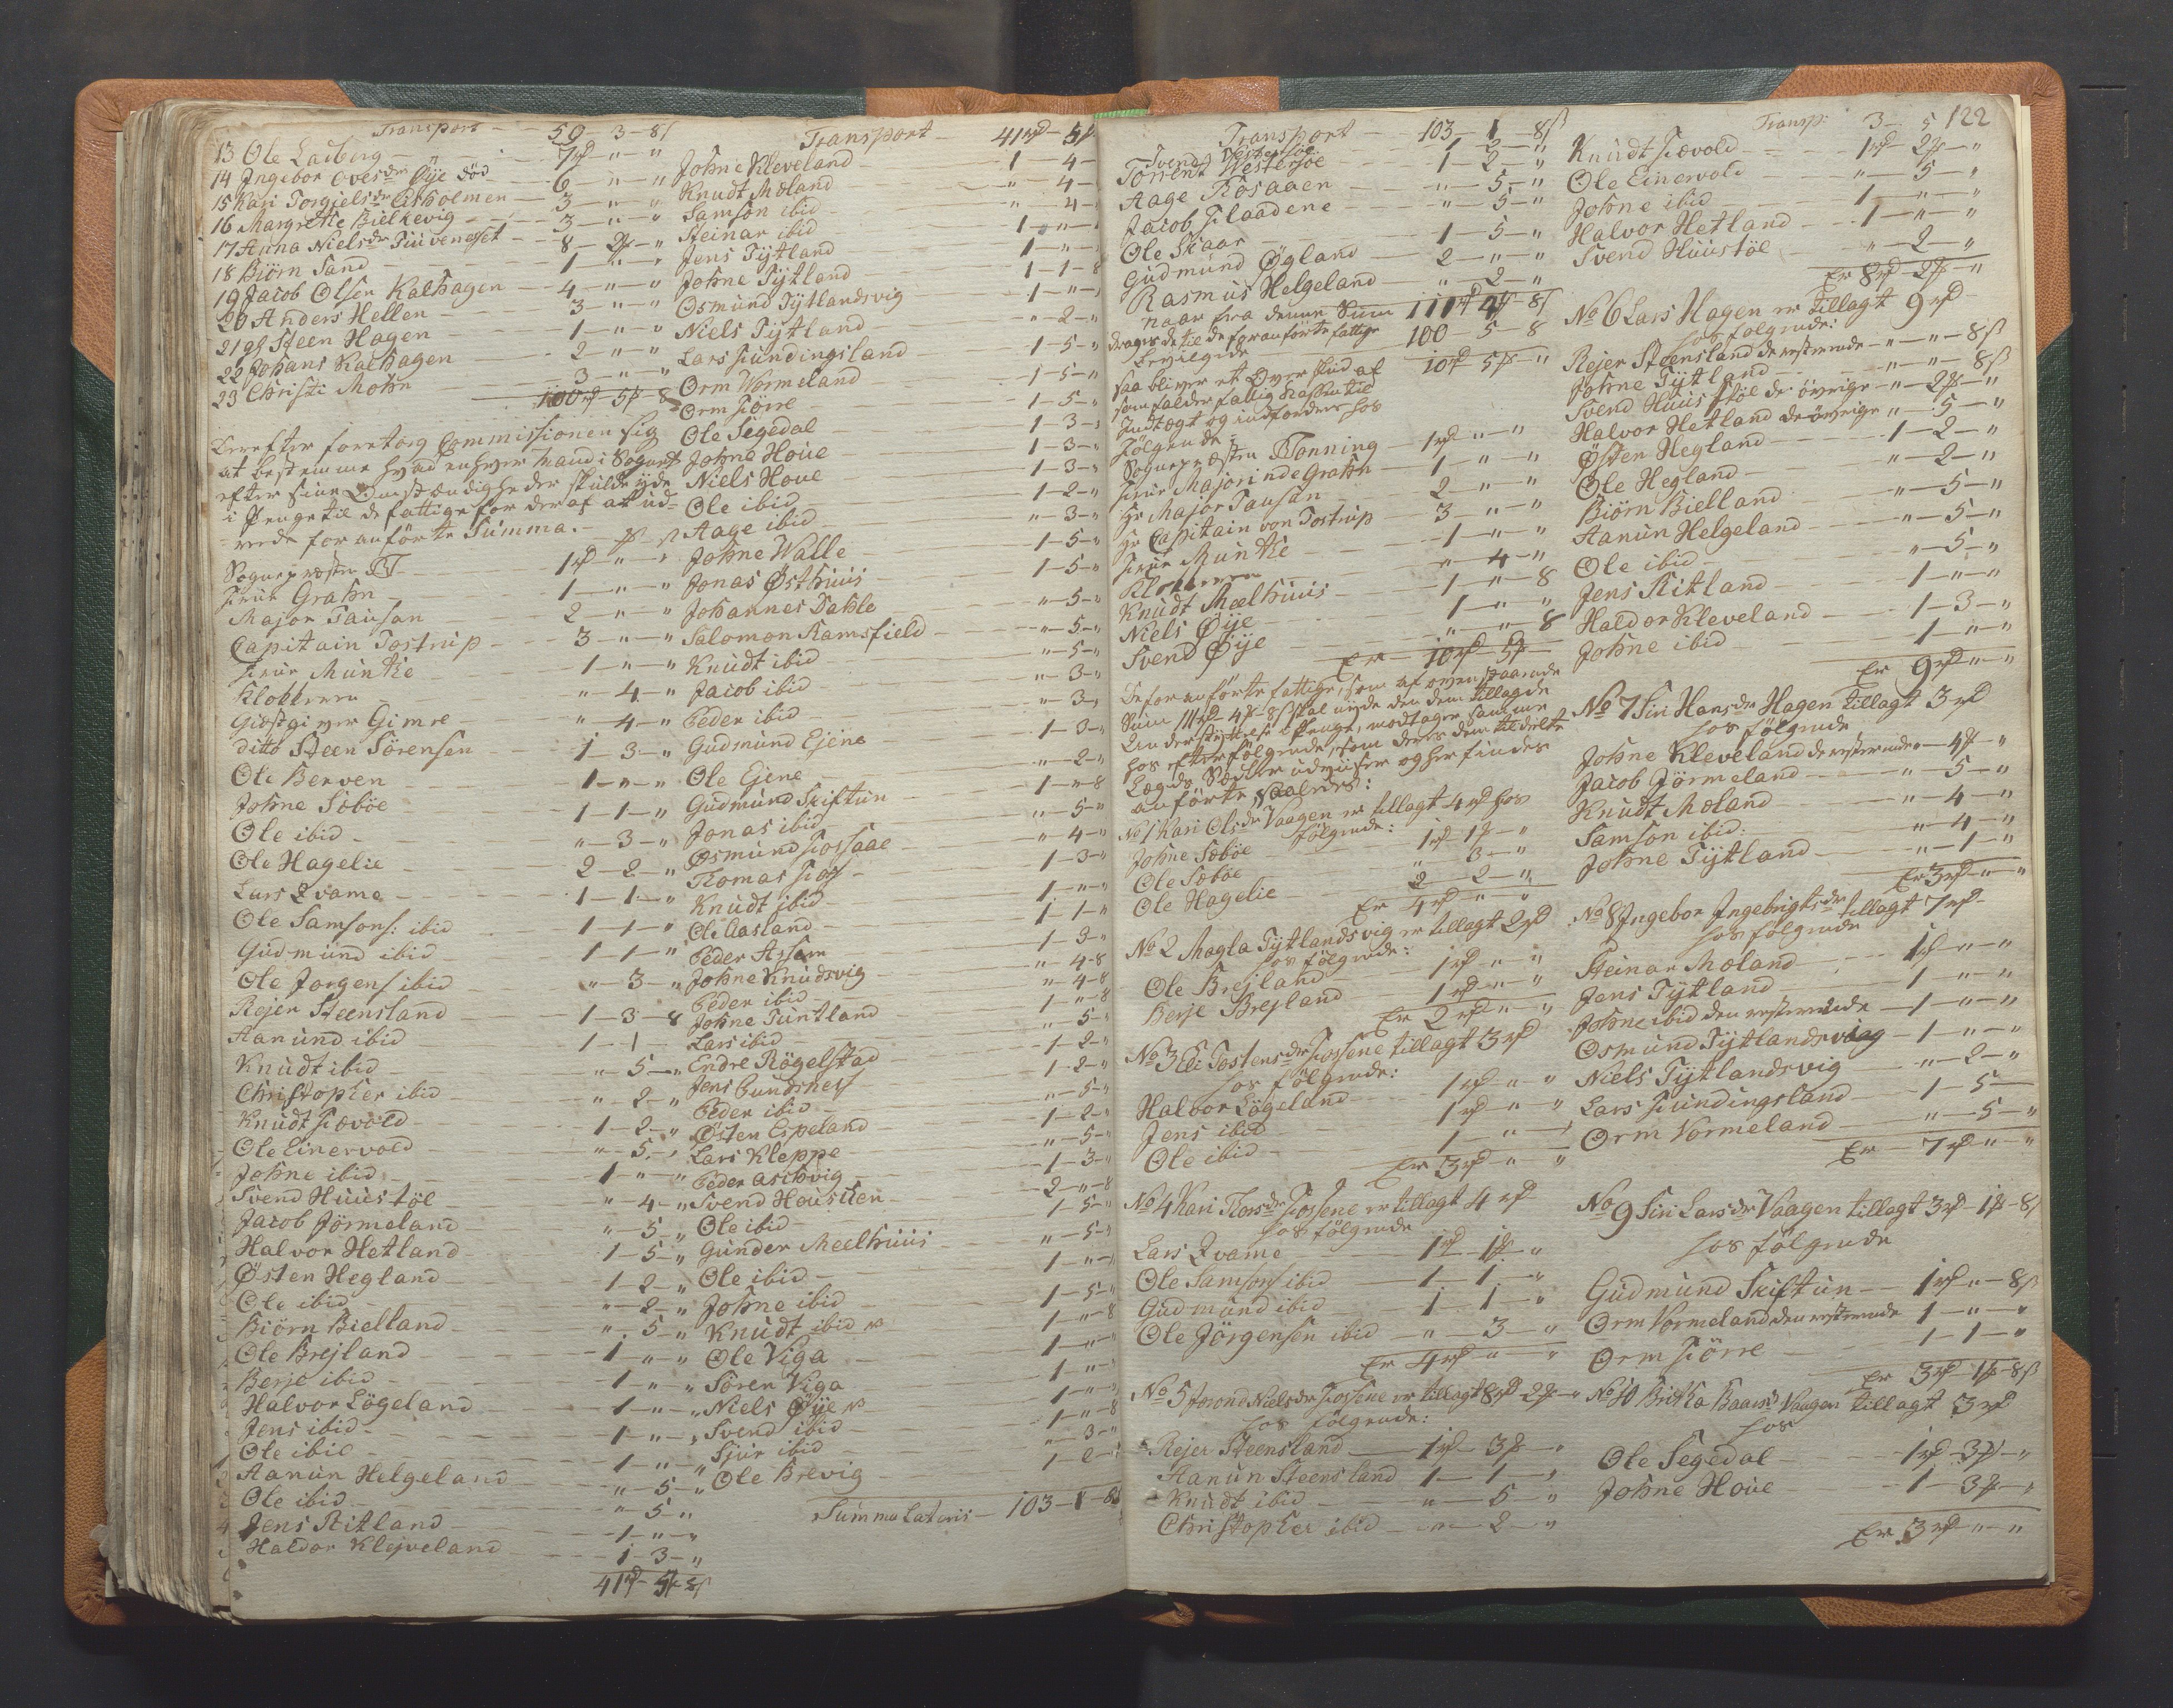 Transport — 50 — 3 — 8ß
13 Ole Ladberg — 7rd " "
14 Ingebor Ovesdr Øije död — 6 — " — "
15 Kari Torgielsdr Eisholmen — 3 — " — "
16 Margrethe Bielkevig — 3 — " — "
17 Anna Nielsdr Tuvenesset — 8 — 2ß — "
18 Biörn Sand — 1 — " — "
19 Jacob Olsen Kalhagen — 4 — " — "
20 Anders Hellen — 3 — " — "
21 gl Steen Hagen — 1 — " — "
22 Johans Kalhagen — 2 — " — "
23 Christi Mohn — 3 — " — "
100rd — 5ß — 8
Derefter foretog Commissionen sig
at bestemme hvad enhver Mand i Sognet
efter sine Omstændigheder skulde yde
i Penge til de fattige for deraf at ud=
=rede for anførte Summa.
Sognepræsten BT — 1rd " "
Frue Grahn — 1 — " — "
Major Tausan — 2 — " — "
Capitain Tostrup — 3 — " — "
Frue Munthe — 1 — " — "
Klokkeren — " — 4 — "
Giestgiver Gimre — " — 4 — "
ditto Steen Sörensen — 1 — 3 — "
Ole Berven — 1 — " — "
Johne Söböe — 1 — 1 — "
Ole ibid — " — 3 — "
Ole Hagelie — 2 — 2 — "
Lars Qvame — 1 — 1 — "
Ole Samsons: ibid — 1 — 1 — "
Gudmund ibid — 1 — 1 — "
Ole Jorgens ibid — " — 3 — "
Rejer Steensland — 1 — 3 — 8
Aanund ibid — 1 — 1 —
Knudt ibid — " — 5 — "
Christopher ibid — " — 2 — "
Knudt Fævold — 1 — 2 — "
Ole Einervold — " — 5 — "
Johne ibid — 1 — " — "
Svend Huustöl — " — 4 — "
Jacob Jörmeland — " — 5 — "
Halvor Hetland — 1 — 5 — "
Østen Hegland — 1 — 2 — "
Ole ibid — " — 2 — "
Biörn Bielland — " — 5 — "
Ole Brejland — 1 — " — "
Berje ibid — 1 — " — "
Halvor Lögeland — 1 — " — "
Jens ibid — 1 — " — "
Ole ibid — 1 — " — "
Aanun Helgeland — " — 5 — "
Ole ibid — " — 5 — "
Jens Ritland — 1 — " — "
Haldor Klejveland — 1 — 3 — "
41rd — 5ß — 8ß
Transport — 41rd — 5ß
Johne Kleveland — 1 — 4 —
Knudt Moland — " — 4 —
Samson ibid — " — 4 —
Steinar ibid — 1 — " —
Jens Tÿtland — 1 — " —
Johne Tÿtland — 1 — 1 — 8
Osmund Tÿtlandsvig — 1 — " —
Niels Tÿtland — " — 2 — "
Lars Fundingsland — 1 — 5 — "
Orm Vormeland — 1 — 5 — "
Orm Fiörre — 1 — 5 — "
Ole Segedal — 1 — 3 — "
Johne Houe — 1 — 3 — "
Niels Houe — 1 — 3 — "
Ole ibid — 1 — 2 — "
Aage ibid — " — 3 — "
Johne Walle — 1 — 5 — "
Jonas Østhuus — 1 — 5 — "
Johannes Dahle — " — 5 — "
Salomon Ramsfield — " — 5 — "
Knudt ibid — " — 5 — "
Jacob ibid — " — 3 — "
Peder ibid — " — 3 — "
Gudmund Ejene — 1 — 3 — "
Ole Ejene — " — 2 — "
Gudmund Skiftun — 1 — " — 8
Jonas ibid — " — 5 — "
Osmund Fossaae — " — 4 — "
Thomas Foss — 1 — 3 — "
Knudt ibid — 1 — " — "
Ole Aasland — 1 — 1 — "
Peder Assem — 1 — 3 — "
Johne Knudsvig — " — 4 — 8
Peder ibid — " — 4 — 8
Johne Tuntland — 1 — " — 8
Lars ibid — " — 5 — "
Endre Rögelstad — 1 — 2 — "
Jens Bundsnes — 1 — 2 — "
Peder ibid — " — 5 — "
Østen Espeland — 1 — 2 — "
Lars Kleppe — " — 5 — "
Peder Aschvig — 1 — 3 — "
Svend Housteen — 2 — " — 8
Ole ibid — 1 — 5 — "
Gunder Meelhuus — " — 5 — "
Ole ibid — 1 — " — "
Johne ibid — 1 — 5 — "
Knudt ibid — 1 — " — 8
Ole Viga — 1 — " — "
Sören Viga — 1 — " — "
Niels Øije — 1 — " — "
Svend ibid — 1 — " — 8
Sjur ibid — " — 3 — "
Ole Brevig — 1 — 2 — "
Summa Lateris — 103 — 1 — 8ß
Transport — 103 — 1 — 8ß
Svend Vestersøe — 1 — 2 — "
Torrent Westersöe — 1 — 2 — "
Aage Rosaaen — " — 5 — "
Jacob Flaadene — " — 5 — "
Ole Skaar — 1 — 5 — "
Gudmund Øgland — 2 — " — "
Rasmus Helgeland — " — 2 — "
naar fra denne Sum 111rd 4ß — 8ß
drages de til de foranførte fattige
Bevilgede — 100 — 5 — 8
saa bliver et Overskud af 10rd 5ß "
som falder fattig Kassen til
Indtægt og indfordres hos
Følgende:
Sognepræsten BTonning — 1rd " — "
Frue Majorinde Grahn — 1 — " — "
Hr Major Tausan — 2 — " — "
Hr Capitain von Tostrup — 3 — " — "
Frue Munthe — 1 — " — "
Klokkeren — " — 4 — "
Knudt Meelhuus — 1 — " — 8
Niels Øije — 1 — " — "
Svend Øije — " — " — 8
Er — 10rd — 5ß —
De foranførte fattige, som af ovenstaaende
Sum 111rd 4ß 8ß skal nyde den dem tillagde
Understøttelse i Penge, modtager samme
hos efterfølgende, som deres dem tildelte
Lægds Sedler udviser og her findes
anførte saaledes:
No 1 Kari Olsdr Vaagen er tillagt 4rd hos
følgende:
Johne Söböe — 1rd 1ß — "
Ole Söböe — " 3 — "
Ole Hagelie — 2 — 2 — "
Er 4rd " — "
No 2 Magla Tÿtlandsvig er tillagt 2rd
hos følgende:
Ole Brejland — 1rd " — "
Berje Brejland — 1rd " — "
Er 2rd " — "
No 3 Eli Tostensdr Fossene tillagt 3rd
hos følgende:
Halvor Lögeland — 1rd " — "
Jens ibid — 1rd " — "
Ole ibid — 1 — " — "
Er 3rd " — "
No 4 Kari Thorsdr Fossene er tillagt 4rd
hos følgende
Lars Qvame — 1rd 1ß — "
Ole Samsons ibid — 1 — 1 — "
Gudmund ibid — 1 — 1 — "
Ole Jörgensen ibid — " — 3 — "
Er 4rd " — "
No 5 Jorond Nielsdr Fossene er tillagt 8rd 2ß — "
hos følgende:
Rejer Steensland — 1rd 3ß — "
Aanun Steensland 1 — 1 — "
Knudt ibid — " — 5 — "
Christopher ibid — " — 2 — "
122
Transp: 3 — 5
Knudt Fævold — 1rd 2ß — "
Ole Einervold — " — 5 — "
Johne ibid — 1 — " — "
Halvor Hetland — 1 — " — "
Svend Huustöl — " — 2 — "
Er 8rd 2ß — "
No 6 Lars Hagen er tillagt 9rd
hos følgende:
Rejer Steensland de resterende — " — " — 8ß
Johne Tÿtland — " — " — 8ß
Svend Huustöl de øvrige — " — 2ß — "
Halvor Hetland de øvrige " — 5 — "
Østen Hegland — 1 — 2 — "
Ole Hegland — " — 2 — "
Biörn Bielland — " — 5 — "
Aanun Helgeland — " — 5 — "
Ole ibid — " — 5 — "
Jens Ritland — 1 — " — "
Haldor Kleveland — 1 — 3 — "
Johne ibid — 1 — " — "
Er 9rd " — "
No 7 Siri Hansdr Hagen tillagt 3rd
hos følgende
Johne Kleveland de resterende — 4ß — "
Jacob Jörmeland — " — 5 — "
Knudt Moland — " — 4 — "
Samson ibid: — " — 4 — "
Johne Tÿtland — " — 1 — "
Er 3rd " — "
No 8 Ingebor Ingebrigtsdr tillagt 7rd —
hos følgende
Steinar Moland — 1rd " — "
Jens Tÿtland — 1 — " — "
Johne ibid den resterende — 1 — " — "
Osmund Tÿtlandsviig — 1 — " — "
Niels Tÿtlandsvig — " — 2 — "
Lars Fundingsland — 1 — 5 —
Orm Vormeland — " — 5 — "
Er — 7rd " — "
No 9 Siri Larsdr Vaagen tillagt 3rd — 1ß — 8ß
hos følgende
Gudmund Skiftun — 1rd " — 8ß
Orm Vormeland den resterende 1 — " — "
Orm Fiörre — 1 — 1 — "
Er 3rd 1ß — 8ß
No 10 Britha Baarsdr Vaagen tillagt 3rd
hos
Ole Segedal — 1rd — 3ß — "
Johne Houe — 1 — 3ß — "
Er 3rd " — "